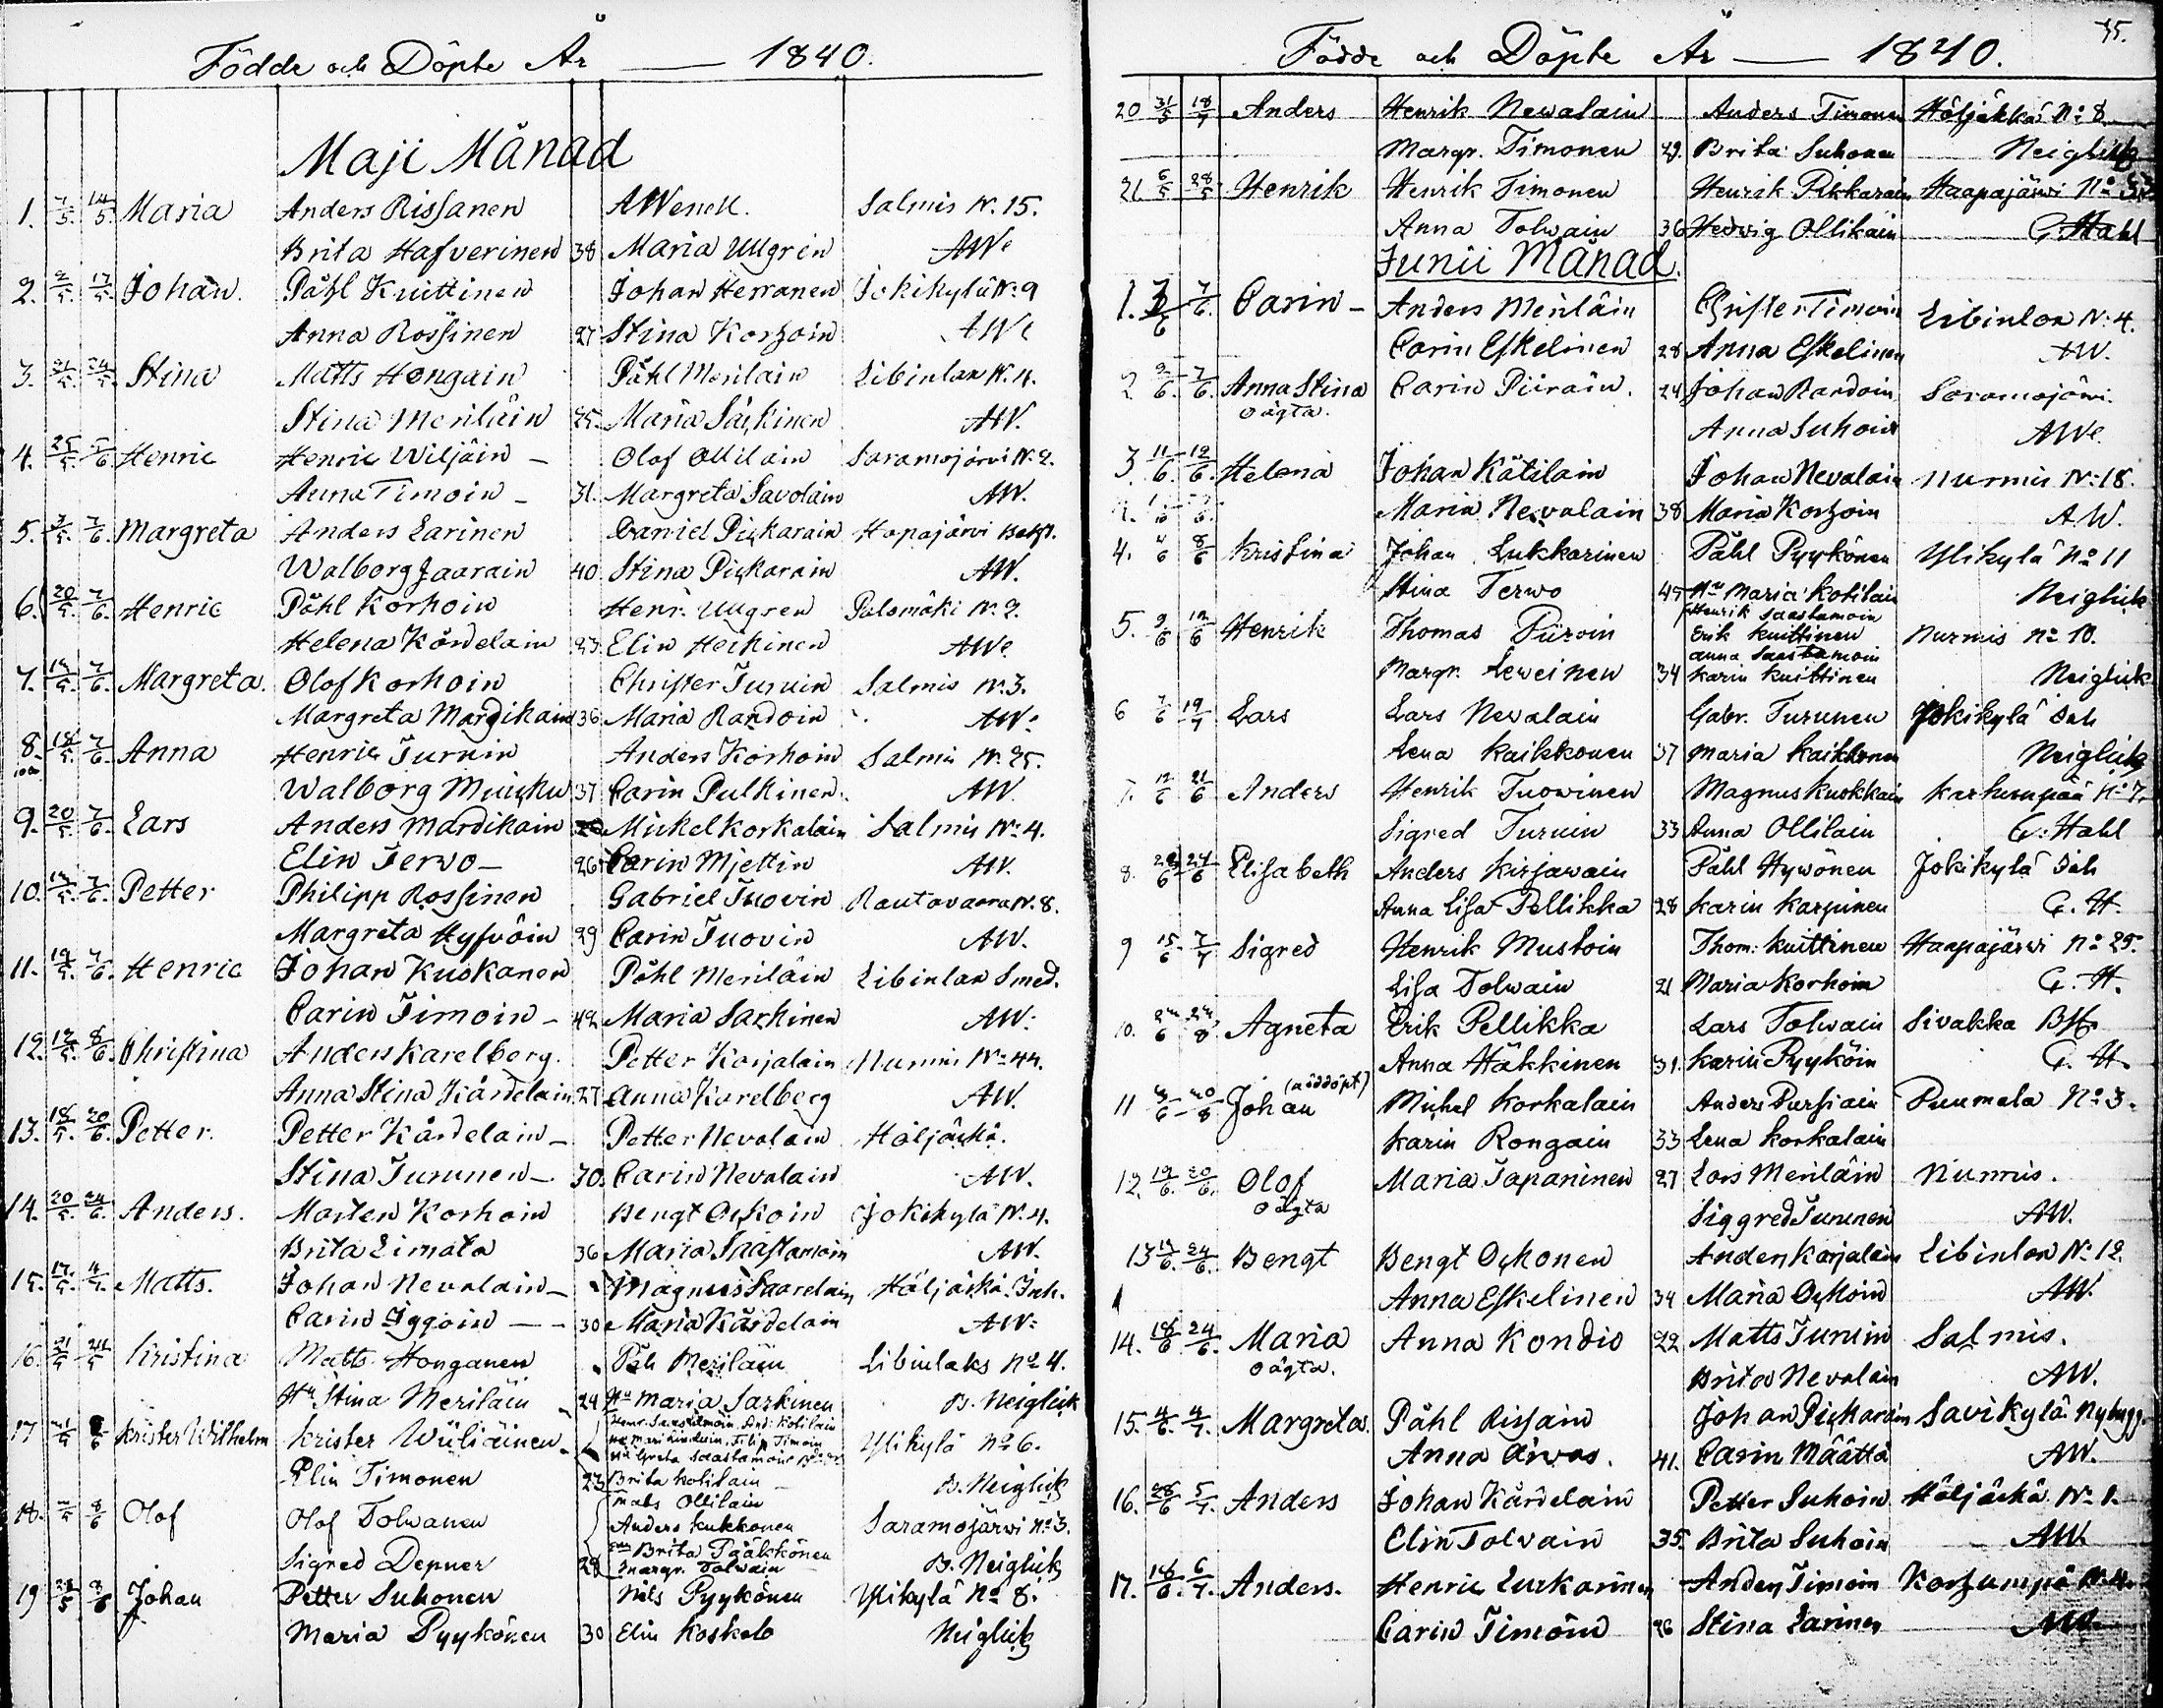 Födde och Döpte År — 1840.
Maji Månad
1. 7/5. 14/5. Maria Anders Rissanen AWenell. Salmis N. 15.
Brita Hafverinen 38 Maria Ullgren AWe
2. 2/5. 17/5. Johan. Påhl Kuittinen Johan Herranen Jokikylä N:9
Anna Rossinen 27 Stina Korhoin AWe
3. 21/5. 24/5. Stina Matts Hongain Påhl Merilain Libinlax N. 4.
Stina Meriläin 25. Maria Särkinen AW.
4. 25/5. 5/6. Henric Henric Wiljäin — Olof Ollilain Saramojärvi N. 2.
Anna Timoin — 31. Margreta Savolain AW.
5. 3/5. 7/6. Margreta Anders Larinen Daniel Pickarain Hapajärvi
Walborg Jaarain 40 Stina Pickarain AW.
6. 20/5. 7/6. Henric Påhl Korhoin Henr. Ullgren Palomäki N. 2.
Helena Kårdelain 23 Elin Heikinen AWe
7. 14/5. 7/6. Margreta. Olof Korhoin Christer Turuin Salmis N. 3.
Margreta Mardikain 36 Maria Randoin AW.
8. 18/5. 7/6. Anna Henric Turuin Anders Korhoin Salmis N. 25.
Walborg Muicku 37 Carin Pulkinen. AW
9. 20/5. 7/6. Lars Anders Mardikain Mickel Korkalain Salmis N:4.
Elin Terwo — 26 Carin Mjettin AW.
10. 14/5. 7/6. Petter Philipp Rossinen Gabriel Tuovin Rautavaara N. 8.
Margreta Hyfvöin 29 Carin Tuovin AW.
11. 19/5. 7/6. Henric Johan Kuskanen Påhl Meriläin Libinlax Smed.
Carin Timoin — 42 Maria Sarkinen AW.
12. 12/5. 8/6. Christina Anders Karelberg. Petter Karjalain Nurmis N:44.
Anna Stina Kårdelain 27 Anna Karelberg AW.
13. 18/5. 20/6. Petter. Petter Kårdelain — Petter Nevalain Höljäckä.
Stina Turunen — 30. Carin Nevalain AW.
14. 20/5. 24/6. Anders. Morten Korhoin Bengt Ockoin Jokikylä N. 4.
Brita Limata 36 Maria Saastamoin AW.
15. 17/5. 4/7. Matts. Johan Nevalain — Magnus Saarelain Höljäckä Inh.
Carin Iggoin — — 30 Maria Kårdelain AW.
16. 21/5 24/5 Kristina Matts Honganen Påh Meriläin Libinlaks No 4.
Hu Stina Meriläin 24 Hu Maria Sarkinen B. Neiglick
17 Krister Wilhelm Krister Wiiliäinen Ylikylä No 6.
Elin Timonen 23 Brita Kotilain B. Neiglick
18. 8/6 Olof Olof Tolwanen Mats Ollilain
Anders Kukkonen Saramojärwi No 3.
Sigred Depner 28 Brita Pääkkönen
Margr. Tolwain B. Neiglick
19 8/6 Johan Petter Suhonen Nils Pyykönen Ylikylä No 8.
Maria Pyykönen 30 Elin Koskelo Neiglick
55.
Födde och Döpte År — 1840.
20 31/5 18/7 Anders Henrik Newalain Anders Timonen Höljäkkä No 8
Margr. Timonen 29. Brita Suhonen Neiglick
21. 6/5 28/5 Henrik Henrik Timonen Henrik Pikkarain Haapajärwi No
Anna Tolwain 36 Hedwig Ollikain G. Stahl
Junii Månad.
1. 7/6. Carin — Anders Meriläin Christer Timoin Libinlax N. 4.
Carin Eskelinen 28 Anna Eskelinen AW.
2. 2/6. 7/6. Anna Stina Carin Piirain. 24 Johan Randoin Saramojärvi
oägta. Anna Suhoin AWe.
3. 11/6. 12/6. Helena Johan Kätilain Johan Nevalain Nurmis N:18.
Maria Nevalain 38 Maria Korhoin AW.
4. 4/6 8/6 Kristina Johan Lukkarinen Påhl Pyykönen Ylikylä No 11
Stina Terwo 45 Hu Maria Kotilain Neiglick
Henrik Saastamoin
5. 9/6 12/6 Henrik Thomas Piiroin Erik Kuittinen Nurmis No 10.
Anna Saastamoin
Margr. Leweinen 34 Karin Kuittinen Neiglick
6 7/6 19/7 Lars Lars Newalain Gabr. Turunen Jokikylä Inh
Lena Kaikkonen 37 Maria Kaikkonen Neiglick
7. 12/6 21/6 Anders Henrik Tuowinen Magnus Kuokkain Karhunpää No 7.
Sigred Turuin 33 Anna Ollilain G. Stahl
8. 22/6 24/6 Elisabeth Anders Kirjawain Påhl Hywönen Jokikylä Inh
Anna Lisa Pellikka 28 Karin Karpinen G. St.
9 15/6 7/7 Sigred Henrik Mustoin Thom: Kuittinen Haapajärwi No 25.
Lisa Tolwain 21 Maria Korhoin G. St.
10. 24/6 24/8 Agneta Erik Pellikka Lars Tolwain Sivakka
Anna Häkkinen 31. Karin Pyyköin G. St.
(nöddöpt)
11 4/6 20/8 Johan Mickel Korkalain Anders Pursiain Puumala No 3.
Karin Rongain 33 Lena Korkalain
12. 19/6. 20/6. Olof Maria Tapaninen 27 Lars Meriläin Nurmis.
oägta Siggred Turunen AW.
13 14/6. 24/6. Bengt Bengt Ockonen Anders Karjalain Libinlax N. 12
Anna Eskelinen 34 Maria Ockoin AW.
14. 18/6 24/6. Maria Anna Kondio 22 Matts Turuin Salmis.
oägta. Brita Nevalain AW.
15. 4/6. 4/7. Margreta. Påhl Rissain Johan Pickarain Savikylä Nybygg.
Anna Arwas. 41. Carin Määttä AW.
16. 28/6 5/7. Anders Johan Kårdelain Petter Suhoin Höljäckä N. 1.
Elin Tolvain 35. Brita Suhoin AW.
17. 18/6. 6/7. Anders. Henric Luckarinen Anders Timoin Korhumpä N. 4.
Carin Timoin 26 Stina Larinen AW.